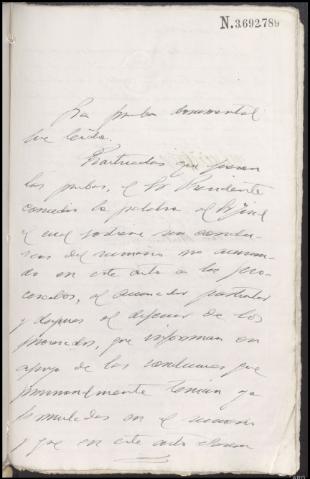 N.3692789
La prueba documental
fue leida.
Practicadas que fueron
las pruebas, el Sr Presidente
concedio la palabra al Sr Fiscal
el cual sostiene sus conclu-
siones del sumario no acusan-
do en este acto a los pro-
cesados, al acusador particular
y despues al defensor de los
procesados, que informan en
apoyo de las conclusiones que
provisionalmente tenian ya
formuladas en el sumario
y que en este acto elevan